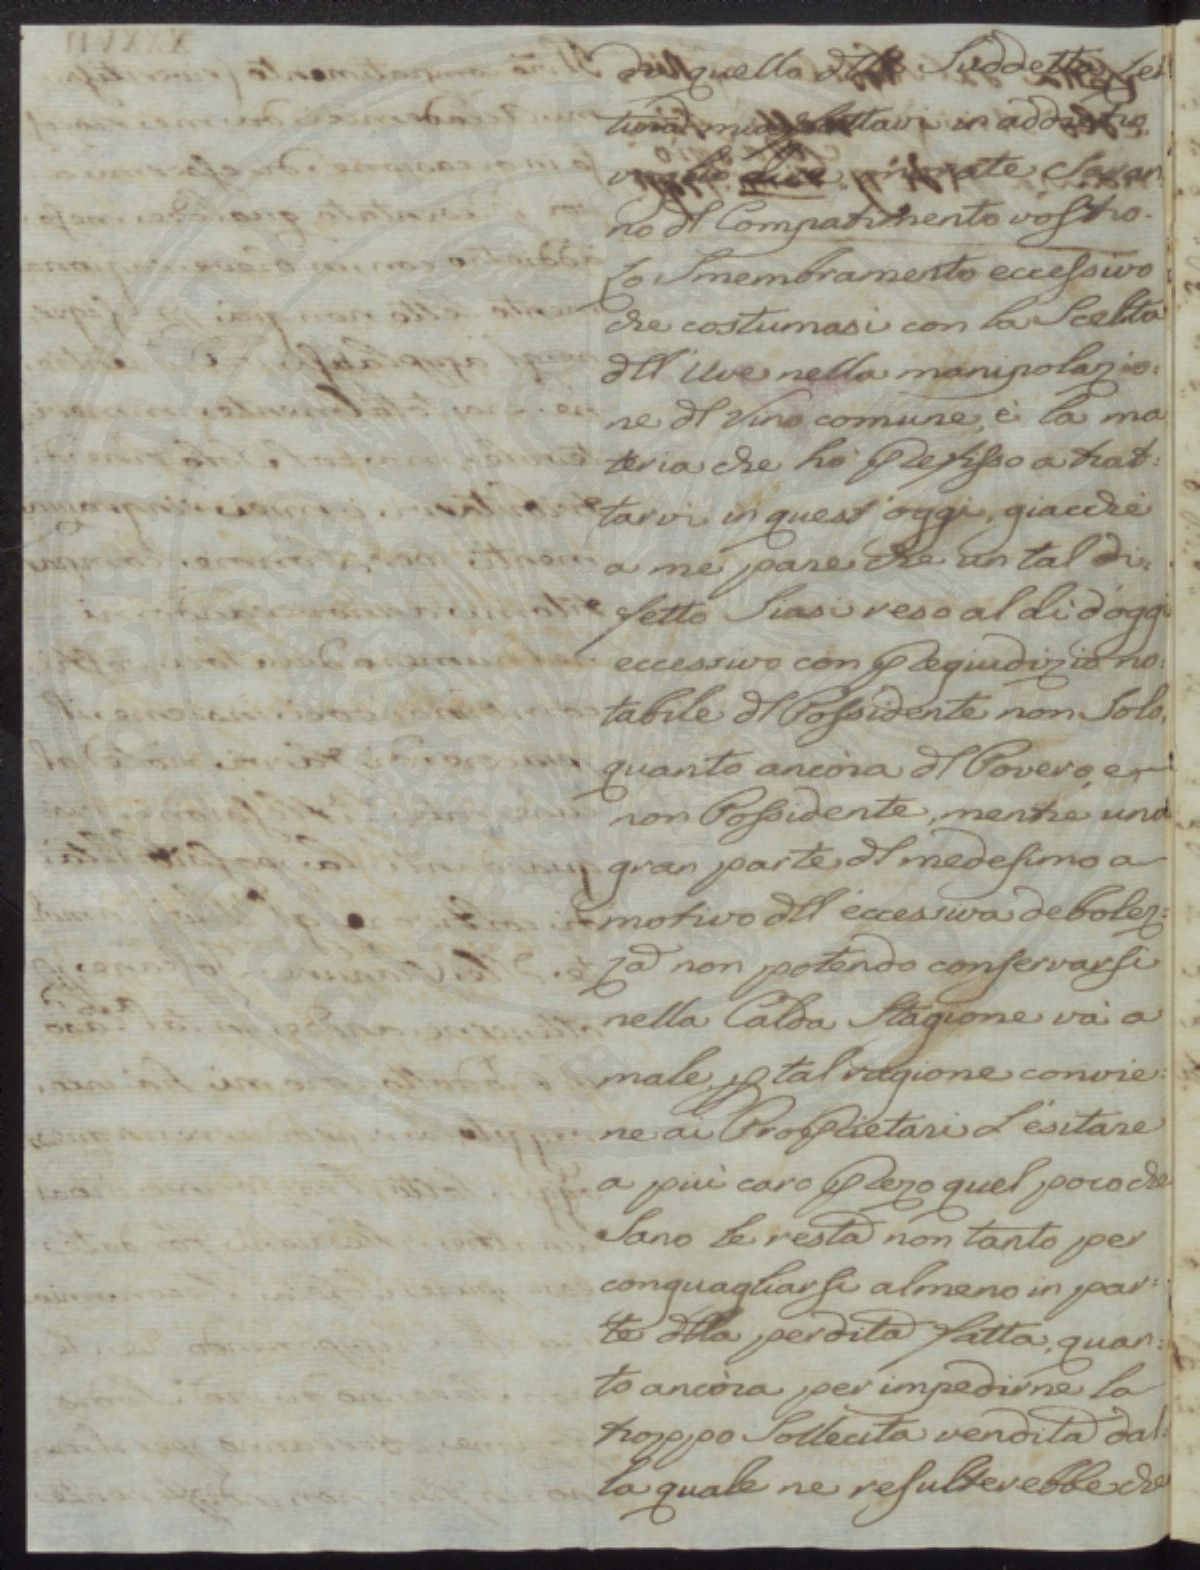 di quello dlla Suddetta
in addietro
no dl Compatimento vostro.
Lo Smembramento eccessivo
che costumasi con la Scelta
dll' Uve nella manipolazio:
ne dl Vino comune, è la ma
teria che hò prefisso a trat:
tarvi in quest' oggi, giacchè
a me pare che un tal di:
fetto Siasi reso al dì d'oggi
eccessivo con pregiudizio no:
tabile dl Possidente non Solo,
quanto ancora dl Povero, e
non Possidente, mentre una
gran parte dl medesimo a
motivo dll' eccessiva debolez:
za non potendo conservarsi
nella Calda Stagione và a
male, p tal ragione convie:
ne ai Proprietari l'esitare
a più caro prezo quel poco che
Sano le resta non tanto per
conguagliarsi almeno in par:
te dlla perdita fatta, quan:
to ancora per impedirne la
troppo Sollecita vendita dal:
la quale ne resulterebbe che